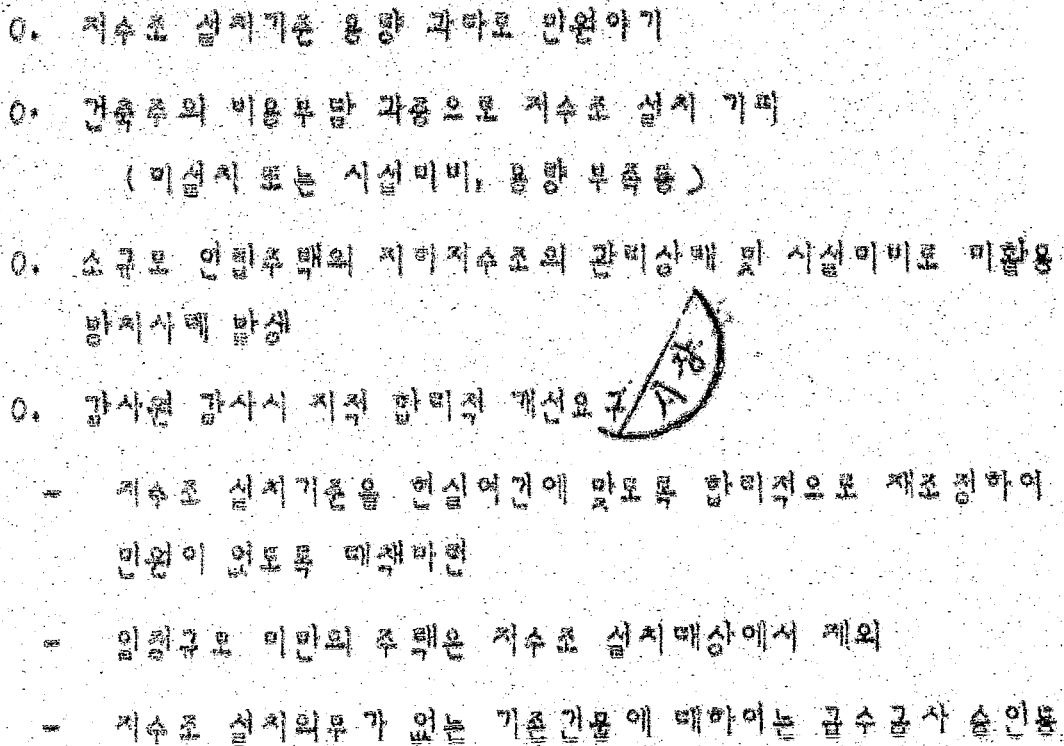 O. 저수조 설치기준 용량 과다로 민원야기
O. 건축주의 비용부담 과중으로 저수조 설치 기피
( 미설치 또는 시설미비, 용량 부족등 )
O. 소규모 연립주택의 지하저수조의 관리상태 및 시설미비로 미활용
방치사례 발생
O. 감사원 감사시 지적 합리적 개선요구
시장
- 저수조 설치기준을 현실여건에 맞도록 합리적으로 재조정하여
민원이 없도록 대책마련
- 일정규모 미만의 주택은 저수조 설치대상에서 제외
- 저수조 설치의무가 없는 기존건물에 대하여는 급수공사 승인등